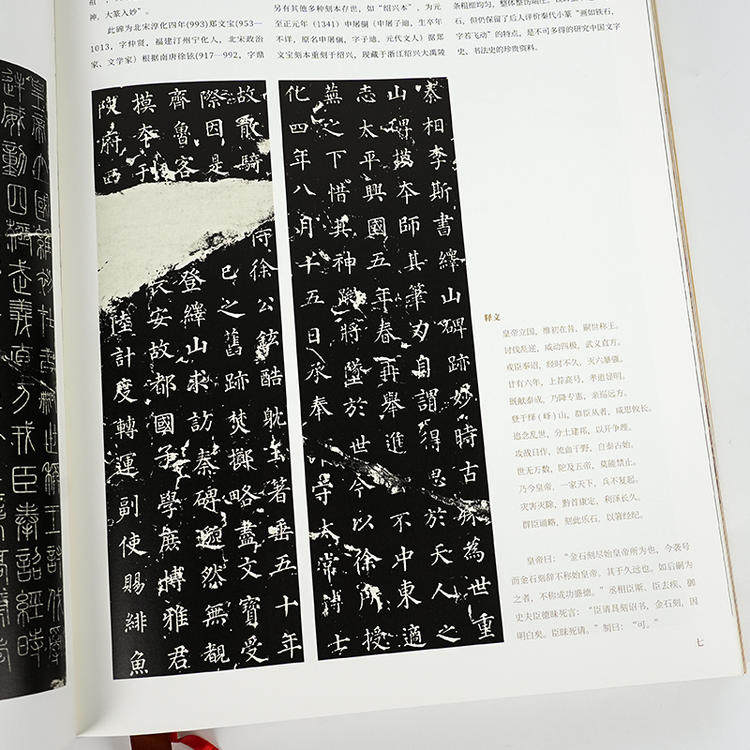 神，大篆入妙》。
此碑为北宋淳化四年(993)郑文宝(953—
1013，字仲贤，福建汀州宁化人，北宋政治
家、文学家）根据南唐徐铉(917—992，字鼎
另有其他多种刻本存世，如“绍兴本”，为元
至正元年（1341）申屠駉（申屠子迪，生卒年
不详，原名申屠駉，字子迪，元代文人）据郑
文宝刻本重刻于绍兴，现藏于浙江绍兴大禹陵
石，但仍保留了后人评价秦代小篆“画如铁石，
字若飞动”的特点，是不可多得的研究中国文字
史、书法史的珍贵资料。
秦相李斯書繹山碑跡妙時古殊為世重
山碑摸本師其筆力自謂得思於天人之
志太平興國五年春再舉進不中東適
蕪之下惜其神蹤將墜於世今以徐所授
化四年八月十五日承奉守太常博士
故散騎侍徐公鉉酷躭玉箸垂五十年
際因是巳之舊跡焚擲略盡文寶受
齊魯客登繹山求訪秦碑邈然無覩
摸本于長安故都國子學庶博雅君
陜府西陸計度轉運副使賜緋魚
皇帝立國維初在昔嗣世稱王討伐
逆威動四極武義直方戎臣奉詔經時
释文
皇帝立国，维初在昔，嗣世称王。
讨伐乱逆，威动四极，武义直方。
戎臣奉诏，经时不久，灭六暴强。
廿有六年，上荐高号，孝道显明。
既献泰成，乃降专惠，亲巡远方。
登于绎（峄）山，群臣从者，咸思攸长。
追念乱世，分土建邦，以开争理。
攻战日作，流血于野，自泰古始。
世无万数，陀及五帝，莫能禁止。
乃今皇帝，一家天下，兵不复起。
灾害灭除，黔首康定，利泽长久。
群臣诵略，刻此乐石，以著经纪。
皇帝曰：“金石刻尽始皇帝所为也，今袭号
而金石刻辞不称始皇帝，其于久远也。如后嗣为
之者，不称成功盛德。”丞相臣斯、臣去疾、御
史夫臣德昧死言：“臣请具刻诏书，金石刻，因
明白矣。臣昧死请。”制曰：“可。”
七